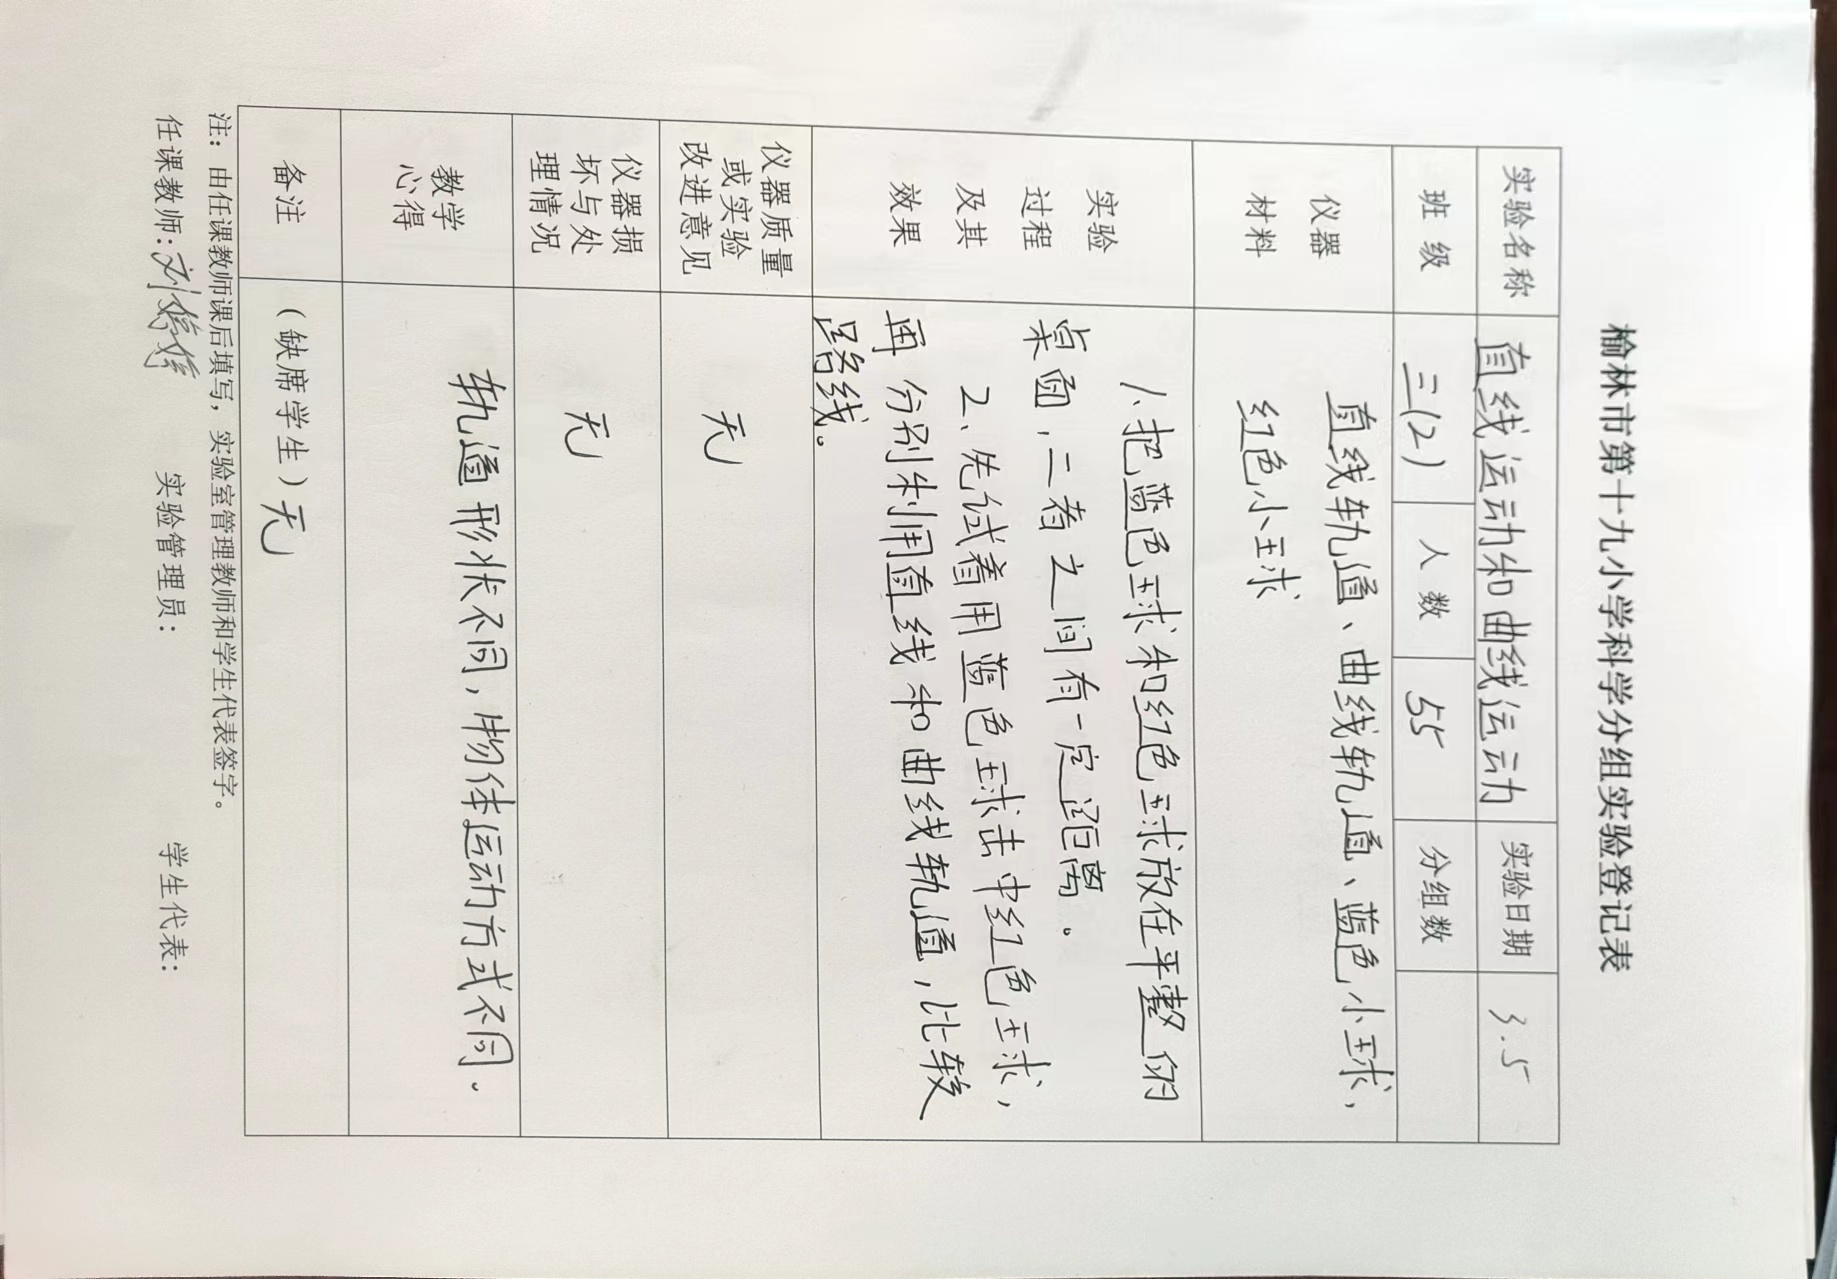 榆林市第十九小学科学分组实验登记表
实验名称 直线运动和曲线运动 实验日期 3.5
班 级 三(2) 人 数 55 分组数
仪器
材料
直线轨道、曲线轨道、蓝色小球,
红色小球
实验
过程
及其
效果
1.把蓝色球和红色球放在平整的
桌面,二者之间有一定距离。
2、先试着用蓝色球击中红色球,
再分别利用直线和曲线轨道,比较
路线。
仪器质量
或实验
改进意见
无
仪器损
坏与处
理情况
无
教学
心得
轨道形状不同,物体运动方式不同.
备注 (缺席学生)无
注:由任课教师课后填写,实验室管理教师和学生代表签字。
任课教师:刘 实验管理员: 学生代表: